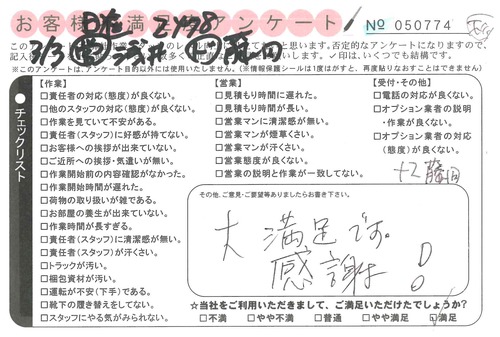 お客様 満 アンケート
№ 050774
この
と思います。否定的なアンケートになりますので、
記入
いします。✓印は、いくつでも結構です。
※このアンケートは、アンケート目的以外には使用いたしません。(※情報保護シールは1度はがすと、再度貼りなおすことはできません)
チェックリスト
【作業】
□責任者の対応(態度)が良くない。
□他のスタッフの対応(態度)が良くない。
□作業を見ていて不安がある。
□責任者(スタッフ)に好感が持てない。
□お客様への挨拶が出来ていない。
□ご近所への挨拶・気遣いが無い。
□作業開始前の内容確認がなかった。
□作業開始時間が遅れた。
□荷物の取り扱いが雑である。
□お部屋の養生が出来ていない。
□作業時間が長すぎる。
□責任者(スタッフ)に清潔感が無い。
□責任者(スタッフ)が汗くさい。
□トラックが汚い。
□梱包資材が汚い。
□運転が不安(下手)である。
□靴下の履き替えをしてない。
□スタッフにやる気がみられない。
【営業】
□見積もり時間に遅れた。
□見積もり時間が長い。
□営業マンに清潔感が無い。
□営業マンが煙草くさい。
□営業マンが汗くさい。
□営業態度が良くない。
□営業の説明と作業が一致してない。
【受付・その他】
□電話の対応が良くない。
□オプション業者の説明
・作業が良くない。
□オプション業者の対応
(態度)が良くない。
その他、ご意見・ご要望等ありましたらお書き下さい。
大満足です。
感謝!
☆当社をご利用いただきまして、ご満足いただけたでしょうか?
□不満 □やや不満 □普通 □やや満足 ☑満足